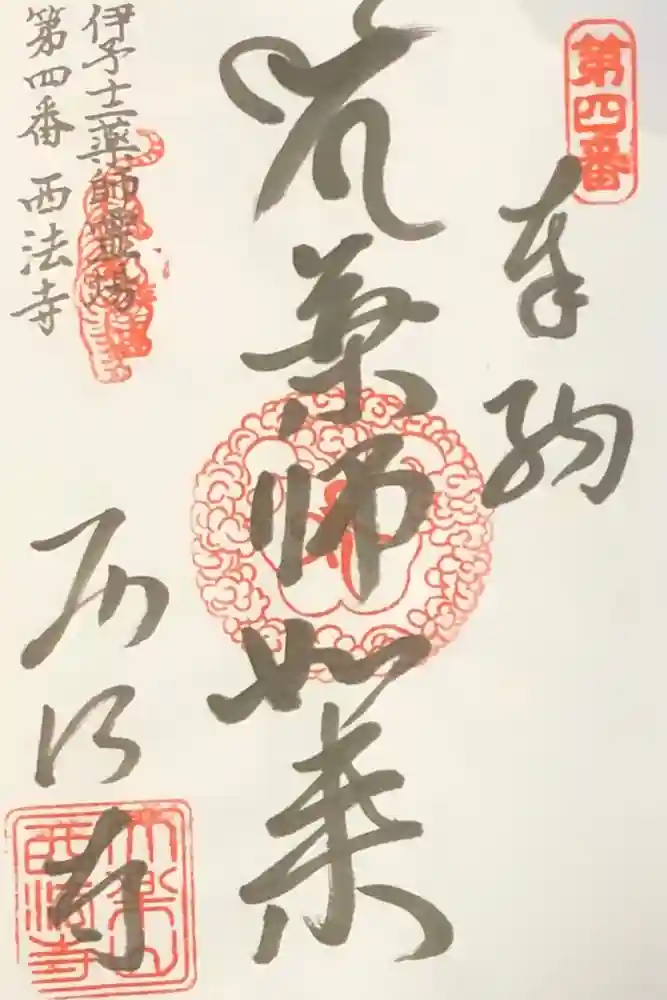 第四番
奉納
薬師如来
西法寺
伊予十二薬師靈場
第四番 西法寺
大楽山
西法寺